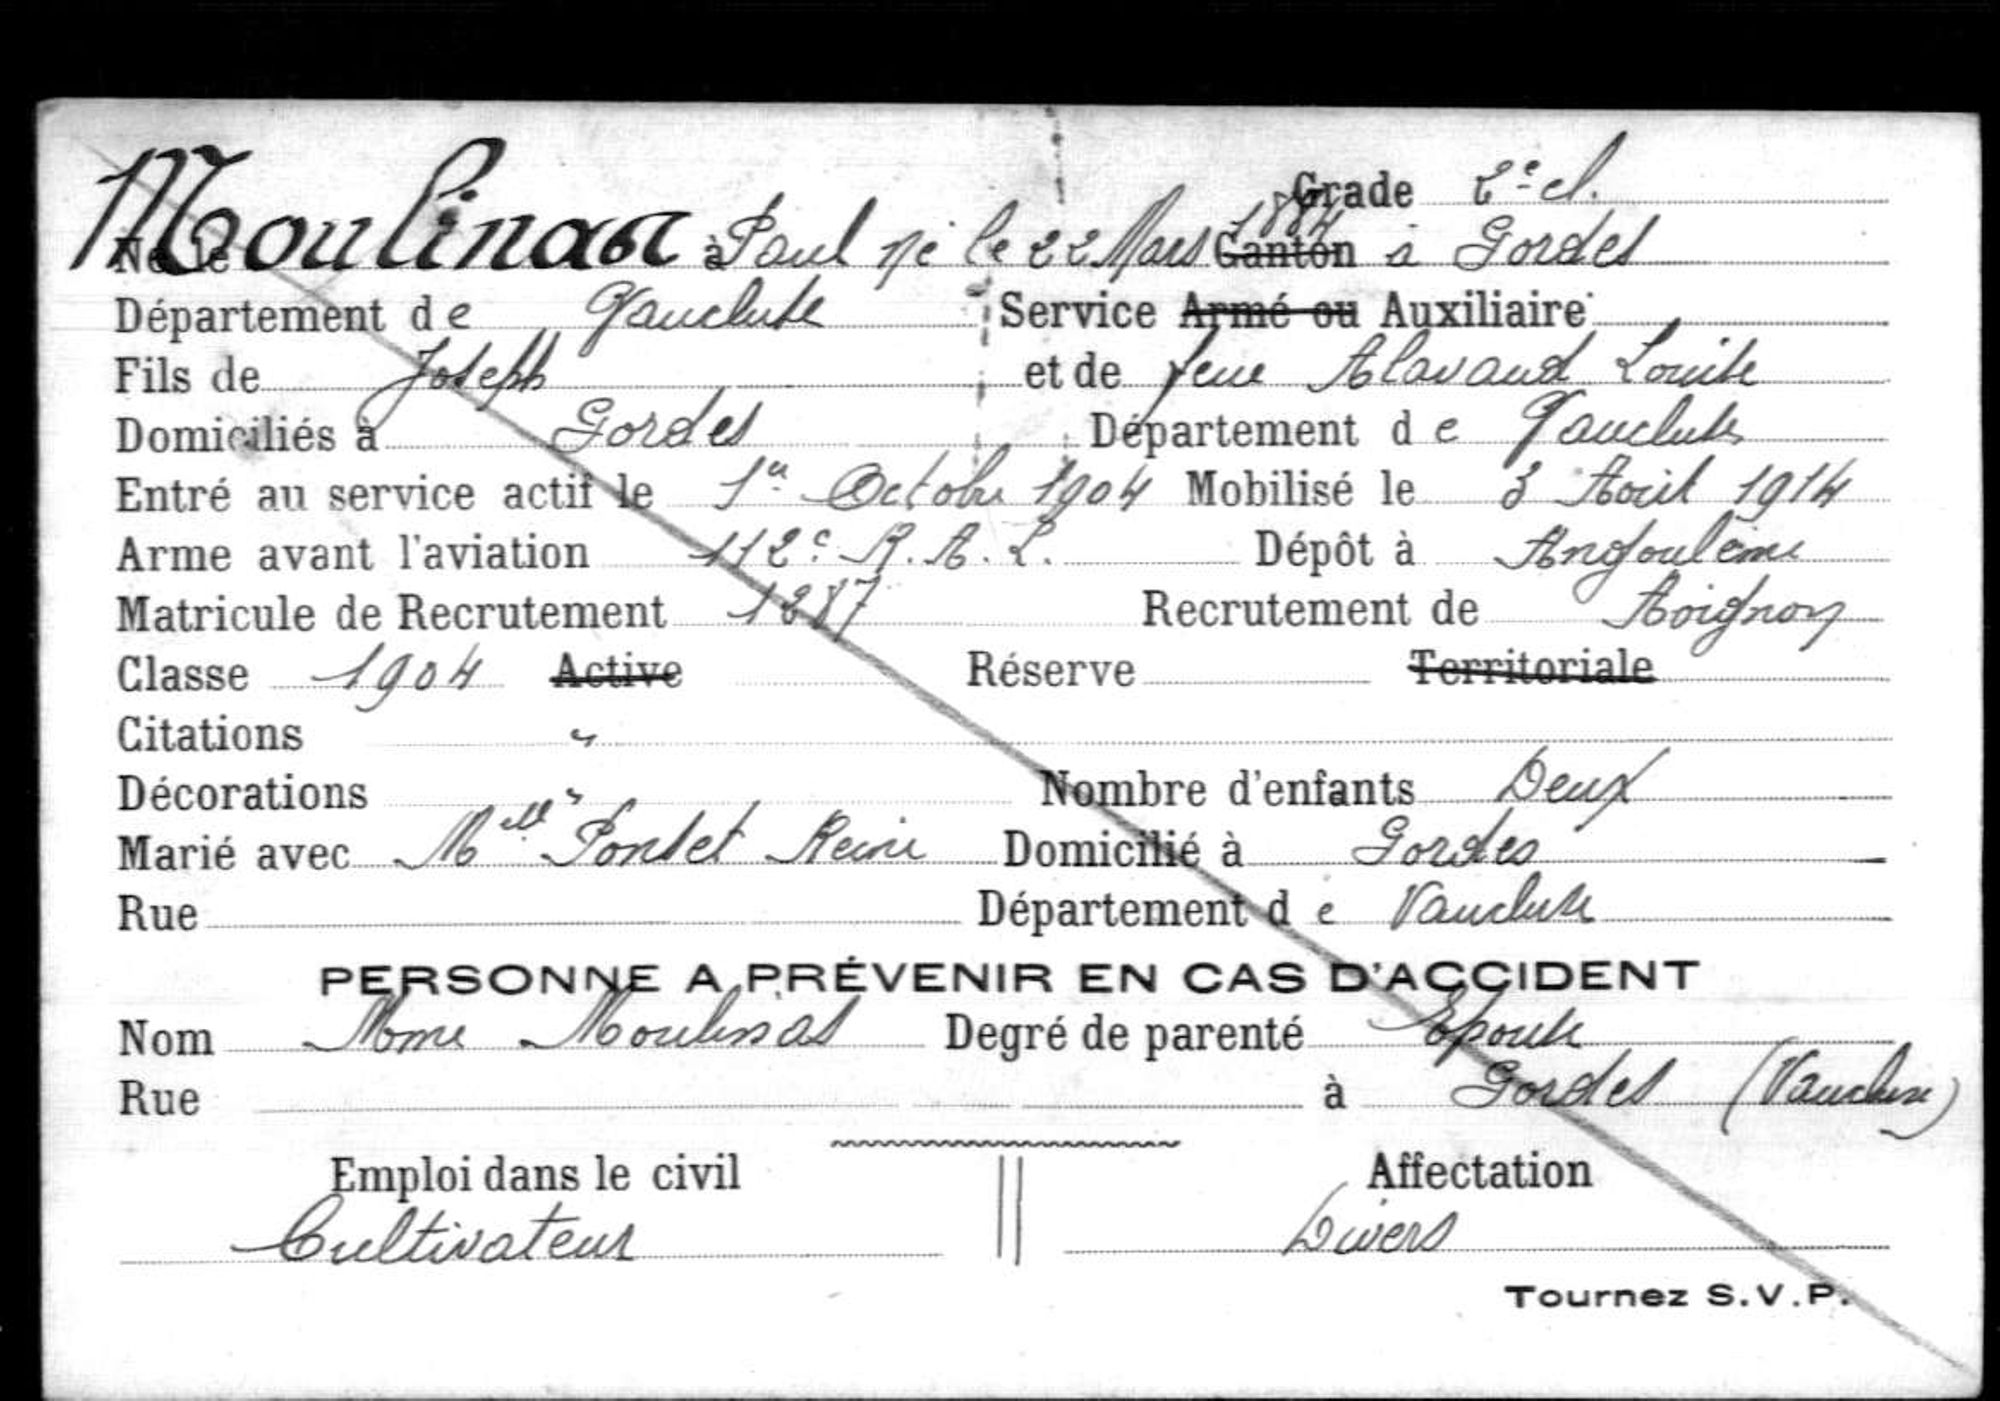 Grade 2e cl.
Moulinas Né le à Paul né le 22 Mars 1884 Canton à Gordes
Département de Vaucluse Service Armé ou Auxiliaire
Fils de Joseph et de feue Alavaud Louise
Domiciliés à Gordes Département de Vaucluse
Entré au service actif le 1er Octobre 1904 Mobilisé le 3 Août 1914
Arme avant l'aviation 112e R.A.L. Dépôt à Angoulême
Matricule de Recrutement 1287 Recrutement de Avignon
Classe 1904 Active Réserve Territoriale
Citations "
Décorations " Nombre d'enfants Deux
Marié avec Melle Pontet Reine Domicilié à Gordes
Rue Département de Vaucluse
PERSONNE A PRÉVENIR EN CAS D'ACCIDENT
Nom Mme Moulinas Degré de parenté Epouse
Rue à Gordes (Vaucluse)
Emploi dans le civil Affectation
Cultivateur Divers
Tournez S.V.P.